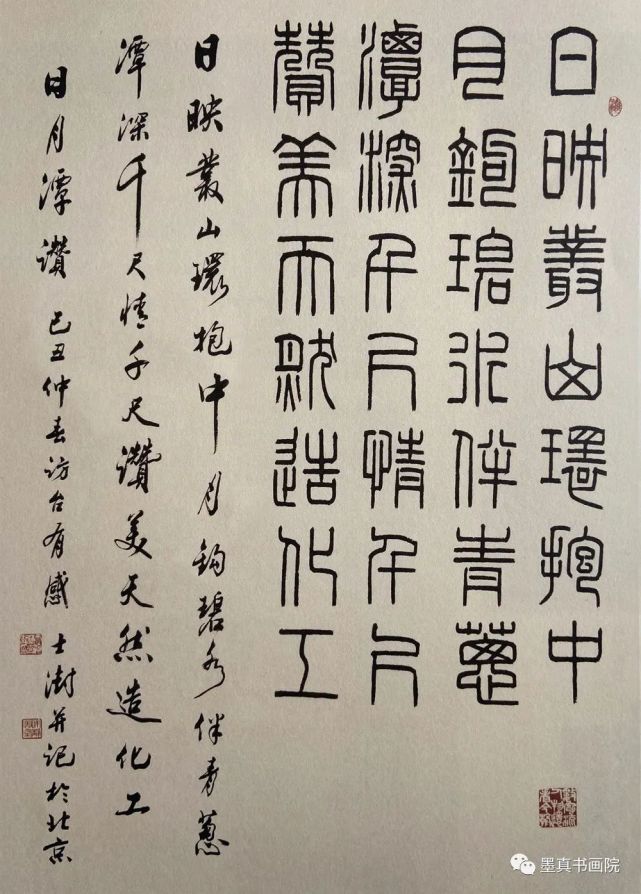 日映叢山環抱中
月鉤碧水伴青蔥
潭深千尺情千尺
贊美天然造化工
日映叢山環抱中月鉤碧水伴青蔥
潭深千尺情千尺讚美天然造化工
日月潭讚 己丑仲春访台有感 士澍并记於北京
墨真书画院